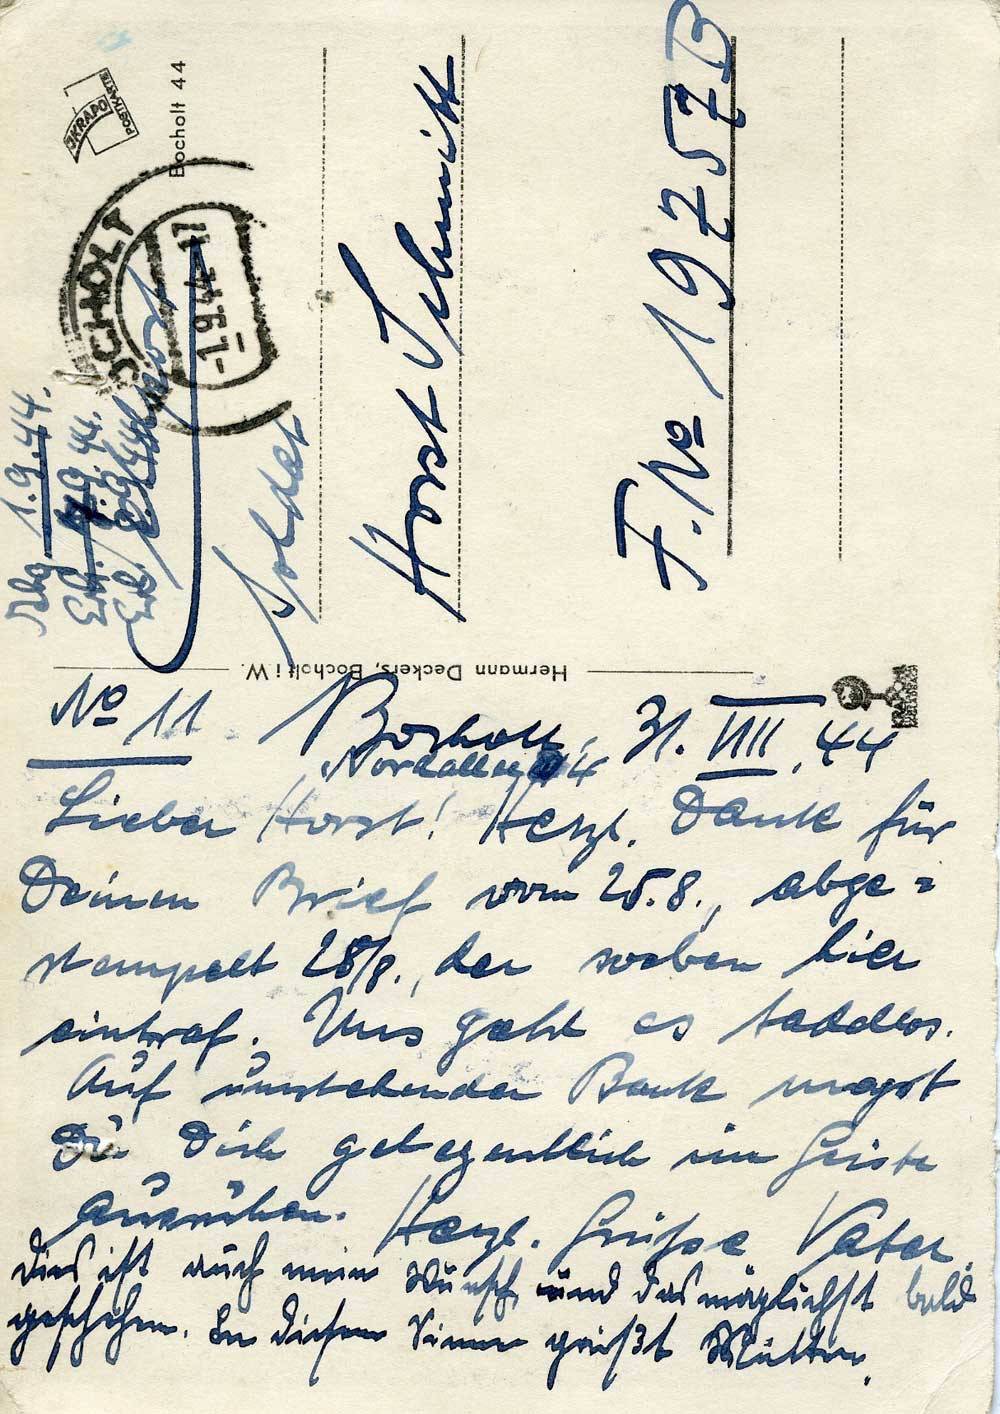 JKRAPO
POSTKARTE
Bocholt 44
BOCHOLT
-1.9.44-17
Feldpost
Abg. 1.9.44.
9.44.
Soldat
Horst Schmitt
F. No 19757B
Hermann Deckers, Bocholt i. W.
No 11 Bocholt, 31. VIII. 44
Nordallee 4
Lieber Horst! Herzl. Dank für
Deinen Brief vom 25.8., abge=
stempelt 28/8., der soeben hier
eintraf. Uns geht es taddlos.
Auf umstehender Bank magst
Du Dich gelegentlich im Geiste
ausruhen. Herzl. Grüsse Vater.
Dies ist auch mein Wunsch und das möglichst bald
geschehen. In diesem Sinne grüßt Mutter.